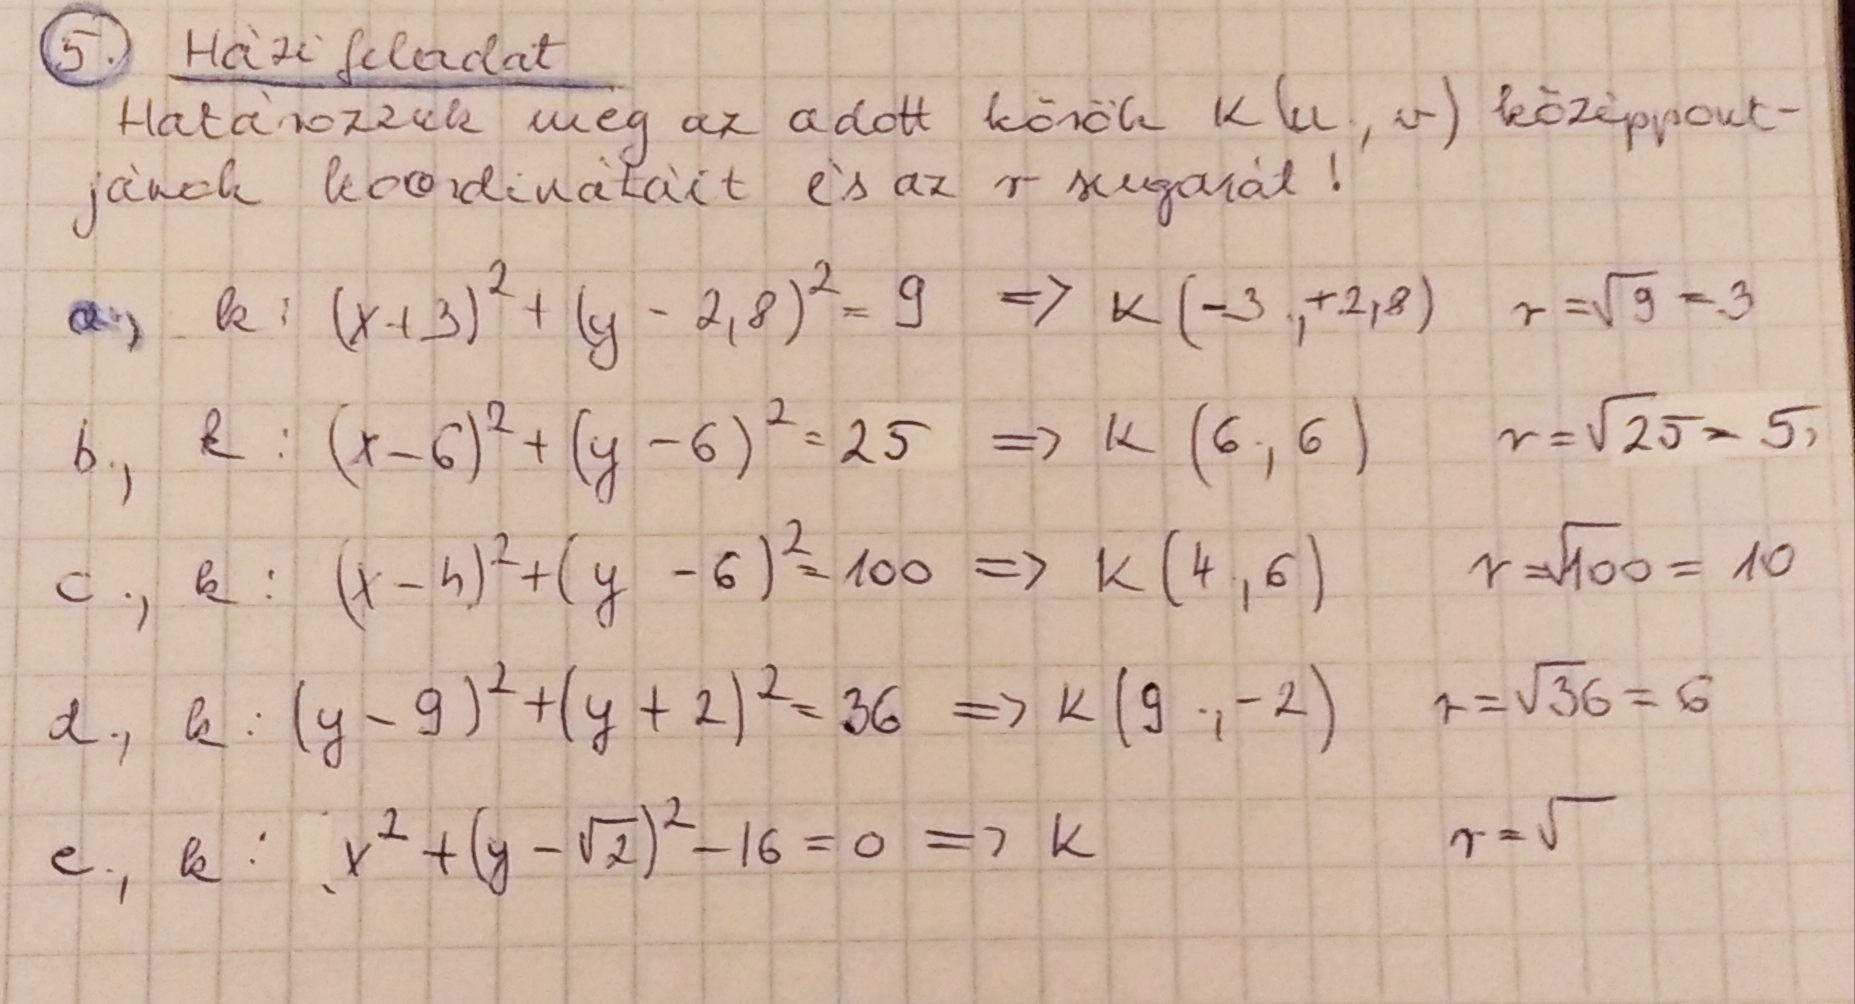 5. Házi feladat
Határozzuk meg az adott körök K(u;, v) középpont-
jának koordinátáit és az r sugarát!
a., k: (x+3)² + (y - 2,8)² = 9 => K(-3;,+2,8) r = √9 = 3
b., k: (x-6)² + (y - 6)² = 25 => K (6;, 6) r = √25 = 5,
c., k: (x-4)² + (y - 6)² = 100 => K(4;, 6) r = √100 = 10
d., k: (y-9)² + (y + 2)² = 36 => K(9;, -2) r = √36 = 6
e., k: x² + (y - √2)² - 16 = 0 => K r = √